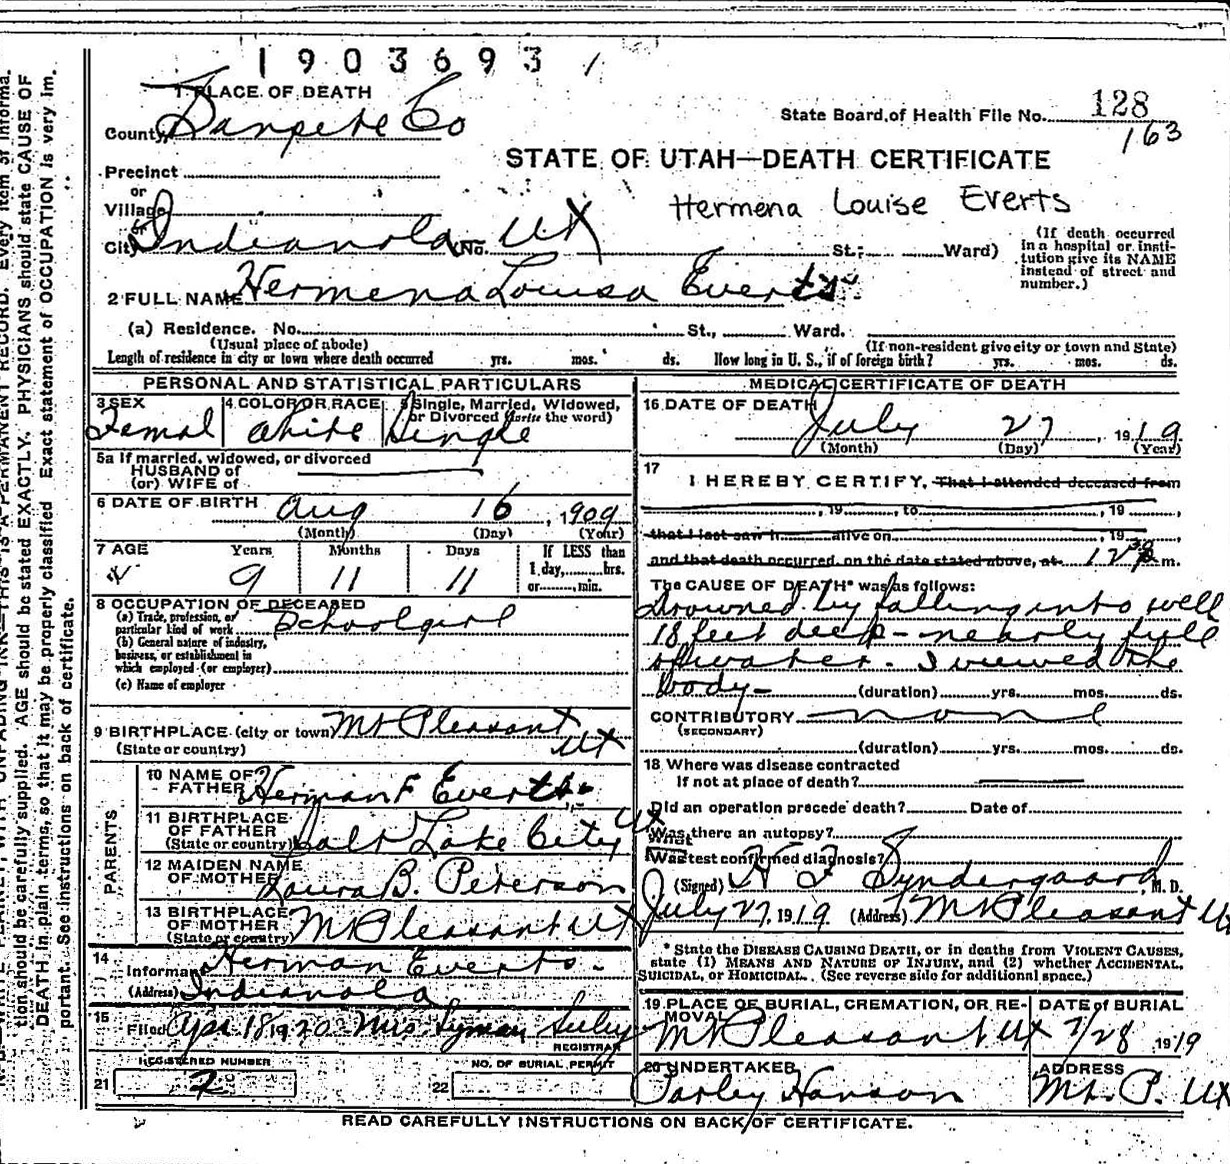 1903693
1 PLACE OF DEATH
County Sanpete Co
State Board of Health File No. 128
163
STATE OF UTAH—DEATH CERTIFICATE
Precinct
or
Village
Hermena Louise Everts
or
City Indianola (No. UT St.; Ward)
(If death occurred in a hospital or institution give its NAME instead of street and number.)
2 FULL NAME Hermena Louisa Everts
(a) Residence. No. St., Ward.
(Usual place of abode) (If non-resident give city or town and State)
Length of residence in city or town where death occurred yrs. mos. ds. How long in U. S., if of foreign birth? yrs. mos. ds.
PERSONAL AND STATISTICAL PARTICULARS
3 SEX 4 COLOR OR RACE 5 Single, Married, Widowed,
or Divorced (write the word)
Femal White Single
5a If married, widowed, or divorced
HUSBAND of
(or) WIFE of
6 DATE OF BIRTH Aug 16, 1909
(Month) (Day) (Year)
7 AGE Years Months Days If LESS than
1 day, hrs.
9 11 11 or min.
8 OCCUPATION OF DECEASED
(a) Trade, profession, or
particular kind of work Schoolgirl
(b) General nature of industry,
business, or establishment in
which employed (or employer)
(c) Name of employer
9 BIRTHPLACE (city or town) Mt Pleasant
(State or country) UT
PARENTS
10 NAME OF
FATHER Herman F Everts
11 BIRTHPLACE
OF FATHER
(State or country) Salt Lake City UT
12 MAIDEN NAME
OF MOTHER Laura B. Peterson
13 BIRTHPLACE
OF MOTHER
(State or country) Mt Pleasant UT
14 Informant Herman Everts
(Address) Indianola
15 Filed Apr 18 1920 Mrs Lyman
REGISTRAR
REGISTERED NUMBER NO. OF BURIAL PERMIT
21 2 22
MEDICAL CERTIFICATE OF DEATH
16 DATE OF DEATH
July 27, 1919
(Month) (Day) (Year)
17
I HEREBY CERTIFY, That I attended deceased from
, 19 , to , 19 ,
that I last saw h alive on , 19 ,
and that death occurred, on the date stated above, at 12 m.
The CAUSE OF DEATH* was as follows:
Drowned by falling into well
18 feet deep - nearly full
of water. I viewed the
body -
(duration) yrs. mos. ds.
CONTRIBUTORY none
(SECONDARY)
(duration) yrs. mos. ds.
18 Where was disease contracted
If not at place of death?
Did an operation precede death? Date of
Was there an autopsy?
What test confirmed diagnosis?
(Signed) H F Syndergaard M. D.
July 27, 1919 (Address) Mt Pleasant Ut
* State the DISEASE CAUSING DEATH, or in deaths from VIOLENT CAUSES,
state (1) MEANS AND NATURE OF INJURY, and (2) whether ACCIDENTAL,
SUICIDAL, or HOMICIDAL. (See reverse side for additional space.)
19 PLACE OF BURIAL, CREMATION, OR REMOVAL DATE of BURIAL
Mt Pleasant UT 7/28 1919
20 UNDERTAKER ADDRESS
Hanson Mt. P. UT
READ CAREFULLY INSTRUCTIONS ON BACK OF CERTIFICATE.
tion should be carefully supplied. AGE should be stated EXACTLY. PHYSICIANS should state CAUSE OF
DEATH in plain terms, so that it may be properly classified. Exact statement of OCCUPATION is very im-
portant. See instructions on back of certificate.